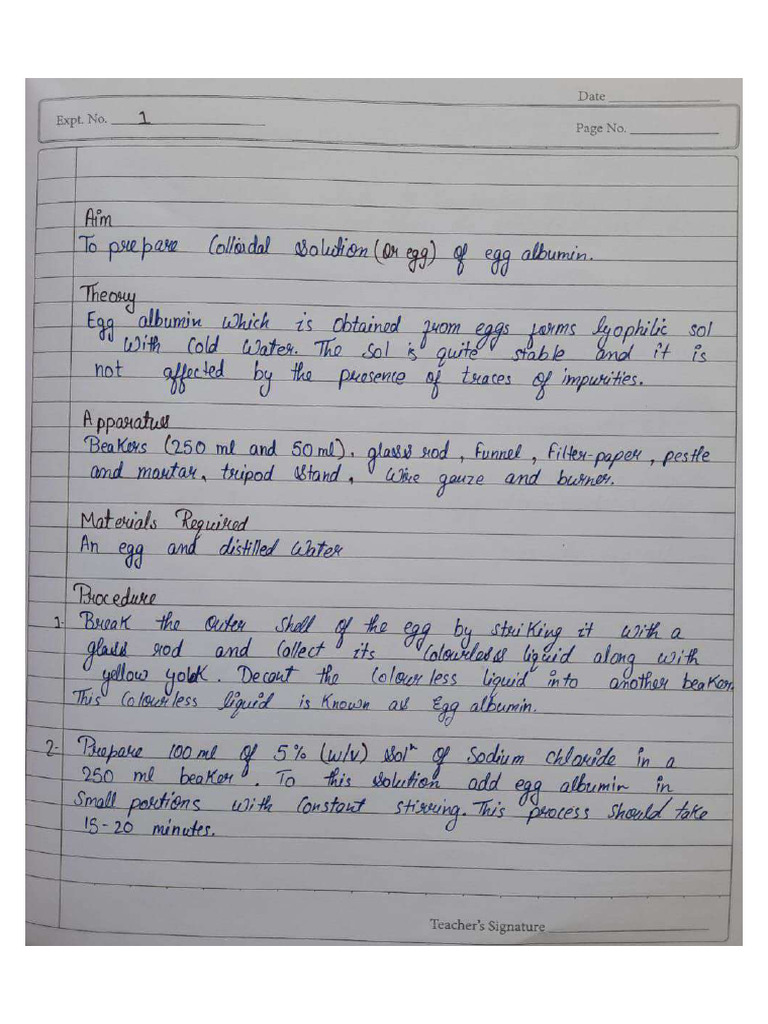 Date
Expt. No. 1
Page No.
Aim
To prepare Colloidal solution (Or egg) of egg albumin.
Theory
Egg albumin which is obtained from eggs forms lyophilic sol
with cold water. The sol is quite stable and it is
not affected by the presence of traces of impurities.
Apparatus
Beakers (250 ml and 50 ml), glass rod, funnel, filter-paper, pestle
and mortar, tripod stand, wire gauze and burner.
Materials Required
An egg and distilled water
Procedure
1- Break the outer shell of the egg by striking it with a
glass rod and collect its colourless liquid along with
yellow yolk. Decant the colourless liquid into another beaker.
This colourless liquid is known as Egg albumin.
2- Prepare 100 ml of 5% (w/v) solⁿ of Sodium chloride in a
250 ml beaker. To this solution add egg albumin in
small portions with constant stirring. This process should take
15-20 minutes.
Teacher's Signature